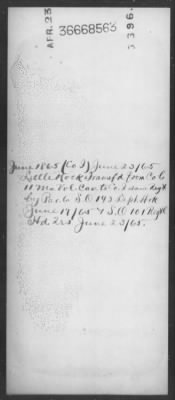 APR. 23
36668563
3396.
June 1865 (Co I) June 23/65
Little Rock Transfd from Co G
11 Mo Vol Cav to Co I same Regt
by Par 6 S.O 143 Dept Ark
June 17/65 & S.O 101 Regtl
Hd Qrs June 23/65.